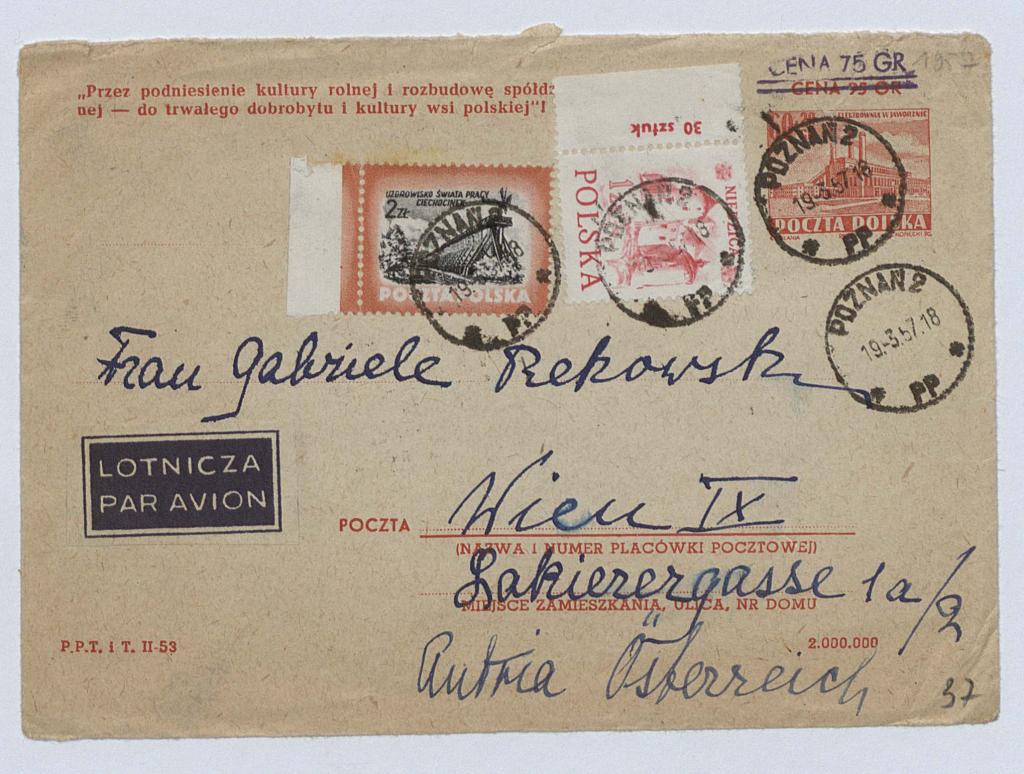 CENA 75 GR 1957
CENA 95 GR
„Przez podniesienie kultury rolnej i rozbudowę
nej — do trwałego dobrobytu i kultury wsi polskiej"!
30 sztuk
60
ELEKTROWNIA W JAWORZNIE
POCZTA POLSKA
POZNAŃ 2
19.-3.57.18
PP
UZDROWISKO ŚWIATA PRACY
CIECHOCINEK
2 ZŁ
POCZTA POLSKA
POZNAŃ 2
PP
POLSKA
PP
POZNAŃ 2
19.-3.57.18
PP
Frau Gabriele Rekowski
LOTNICZA
PAR AVION
POCZTA Wien IX
(NAZWA I NUMER PLACÓWKI POCZTOWEJ)
Lakierergasse 1a/2
MIEJSCE ZAMIESZKANIA, ULICA, NR DOMU
P.P.T. i T. II-53
2.000.000
Austria Österreich
37